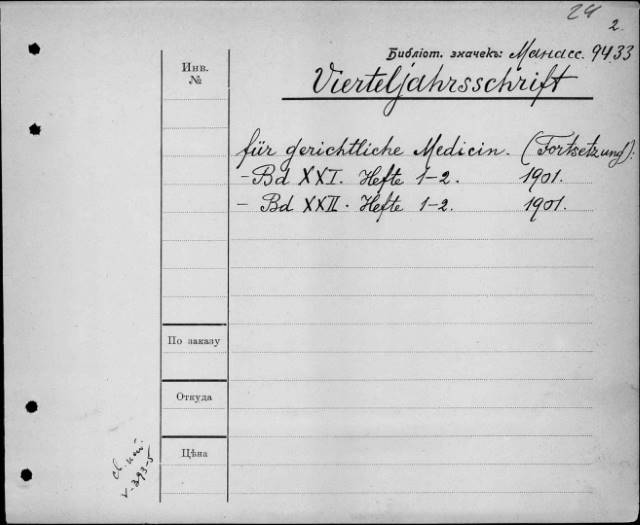 24
2.
Библіот. значекъ: Манасс. 9433
Инв.
№
Vierteljahrsschrift
für gerichtliche Medicin. (Fortsetzung):
– Bd XXI. Hefte 1–2. 1901.
– Bd XXII. Hefte 1–2. 1901.
По заказу
Откуда
Цѣна